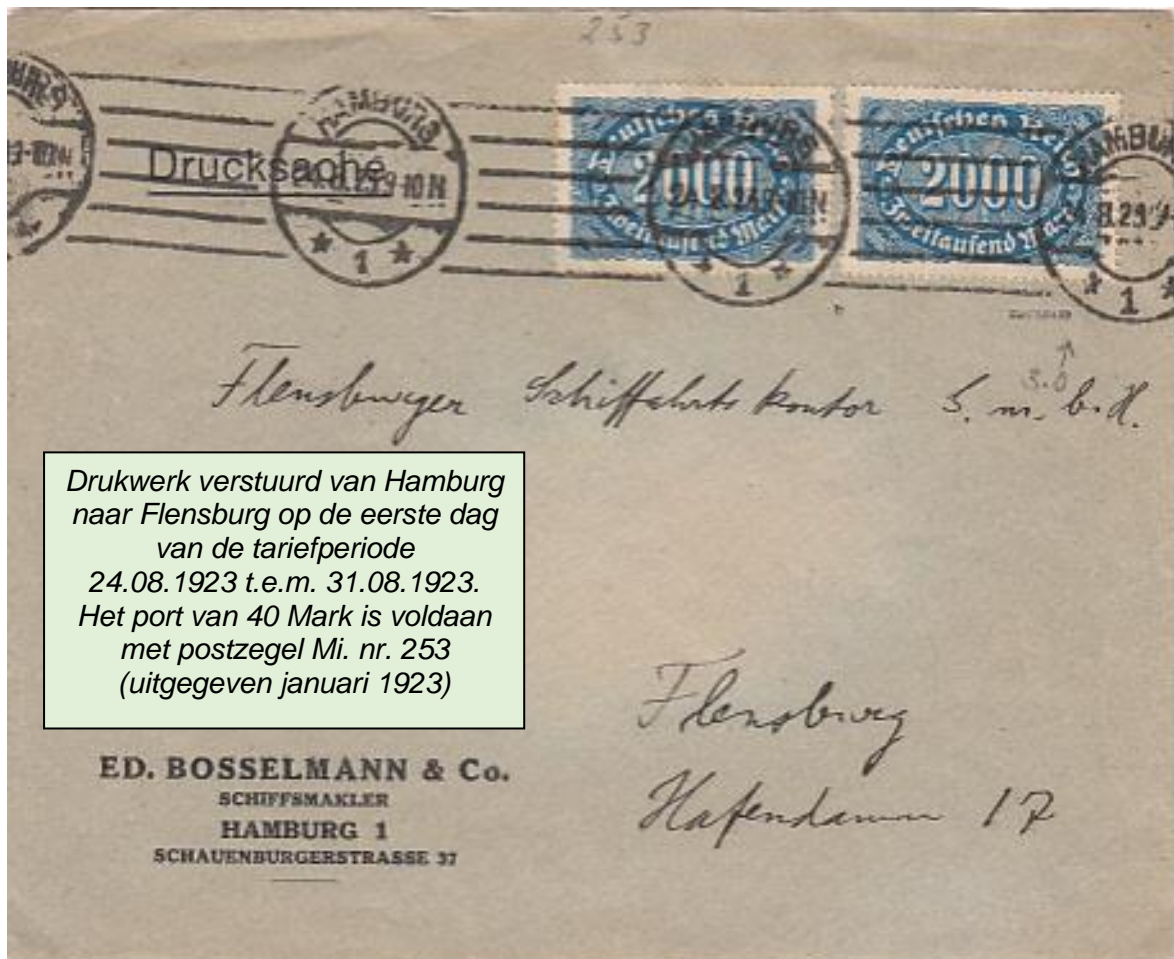 253
HAMBURG
Drucksache
Deutsches Reich
2000
Zweitausend Mark
Deutsches Reich
2000
Zweitausend Mark
HAMBURG
24.8.23.9-10N
* 1 *
HAMBURG
24.8.23.9-10N
* 1 *
HAMBURG
8.23.9
* 1 *
Flensburger Schiffahrts kontor G. m. b. H.
Drukwerk verstuurd van Hamburg
naar Flensburg op de eerste dag
van de tariefperiode
24.08.1923 t.e.m. 31.08.1923.
Het port van 40 Mark is voldaan
met postzegel Mi. nr. 253
(uitgegeven januari 1923)
Flensburg
Hafendamm 17
ED. BOSSELMANN & Co.
SCHIFFSMAKLER
HAMBURG 1
SCHAUENBURGERSTRASSE 37